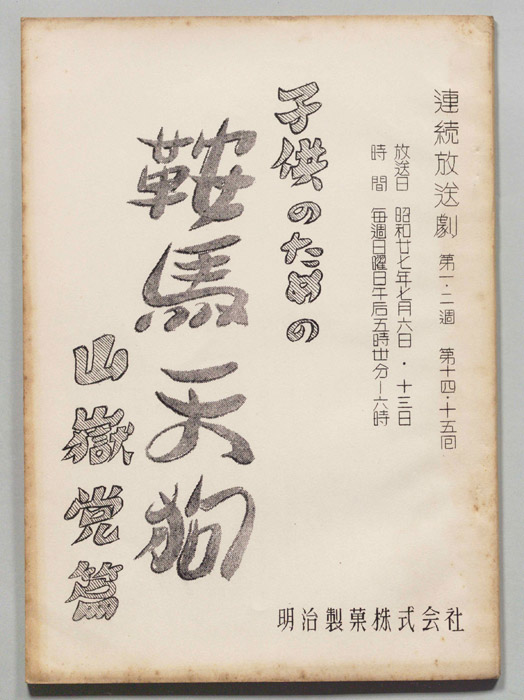 連続放送劇 第一・二週 第十四・十五回
放送日 昭和廿七年七月六日・十三日
時間 毎週日曜日午后五時丗分―六時
子供のための
鞍馬天狗
山嶽党篇
明治製菓株式会社